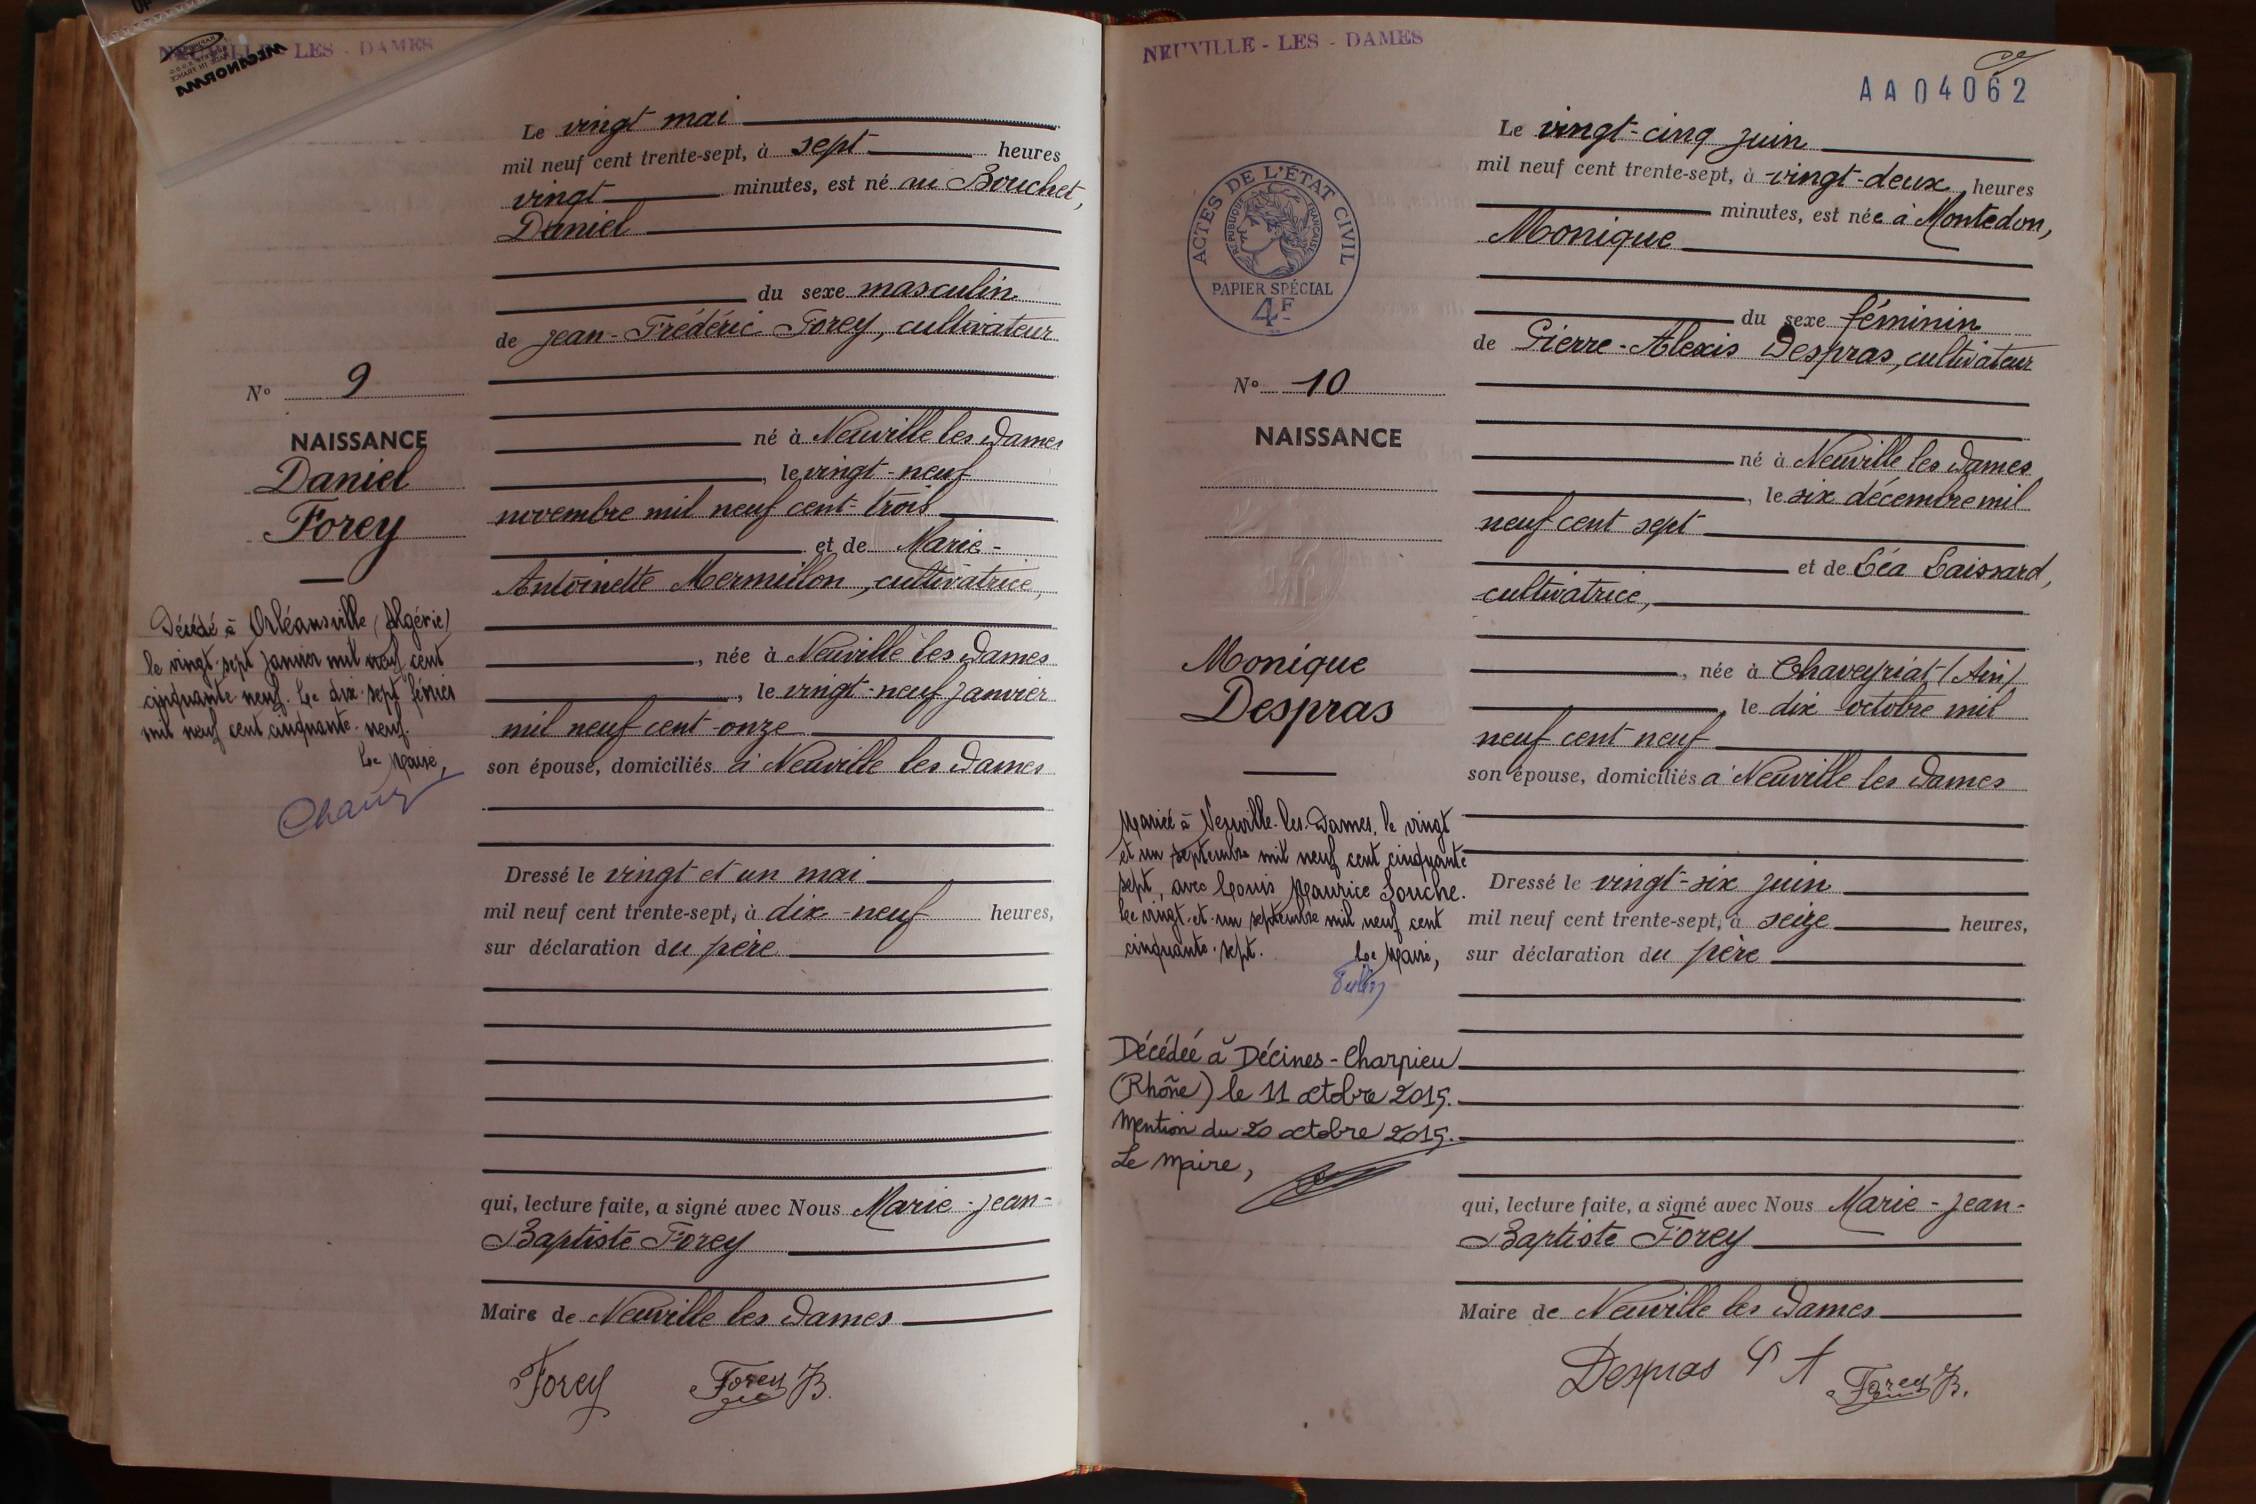 NEUVILLE - LES - DAMES
MECANORMA
Le vingt mai
mil neuf cent trente-sept, à sept heures
vingt minutes, est né au Bouchet,
Daniel
du sexe masculin
de Jean-Frédéric Forey, cultivateur
né à Neuville les Dames
, le vingt-neuf
novembre mil neuf cent trois
et de Marie-
Antoinette Mermillon, cultivatrice,
, née à Neuville les Dames
, le vingt-neuf janvier
mil neuf cent onze
son épouse, domiciliés à Neuville les Dames
Dressé le vingt et un mai
mil neuf cent trente-sept, à dix-neuf heures,
sur déclaration du père
qui, lecture faite, a signé avec Nous Marie-Jean-
Baptiste Forey
Maire de Neuville les Dames
Forey Forey JB.
N° 9
NAISSANCE
Daniel
Forey
Décédé à Orléansville (Algérie)
le vingt-sept janvier mil neuf cent
cinquante neuf. Le dix-sept février
mil neuf cent cinquante-neuf.
Le Maire,
NEUVILLE - LES - DAMES
AA04062
Le vingt-cinq juin
mil neuf cent trente-sept, à vingt-deux heures
minutes, est née à Montedon,
Monique
du sexe féminin
de Pierre-Alexis Despras, cultivateur
né à Neuville les Dames
, le six décembre mil
neuf cent sept
et de Léa Laissard,
cultivatrice,
, née à Chaveyriat (Ain)
, le dix octobre mil
neuf cent neuf
son épouse, domiciliés à Neuville les Dames
Dressé le vingt-six juin
mil neuf cent trente-sept, à seize heures,
sur déclaration du père
qui, lecture faite, a signé avec Nous Marie-Jean-
Baptiste Forey
Maire de Neuville les Dames
Despras P A Forey JB.
ACTES DE L'ÉTAT CIVIL
RÉPUBLIQUE FRANÇAISE
PAPIER SPÉCIAL
4F
N° 10
NAISSANCE
Monique
Despras
Mariée à Neuville-les-Dames, le vingt
et un septembre mil neuf cent cinquante
sept, avec Louis Maurice Souche.
Le vingt-et-un septembre mil neuf cent
cinquante-sept. Le Maire,
Décédée à Décines-Charpieu
(Rhône) le 11 octobre 2015.
Mention du 20 octobre 2015.
Le Maire,